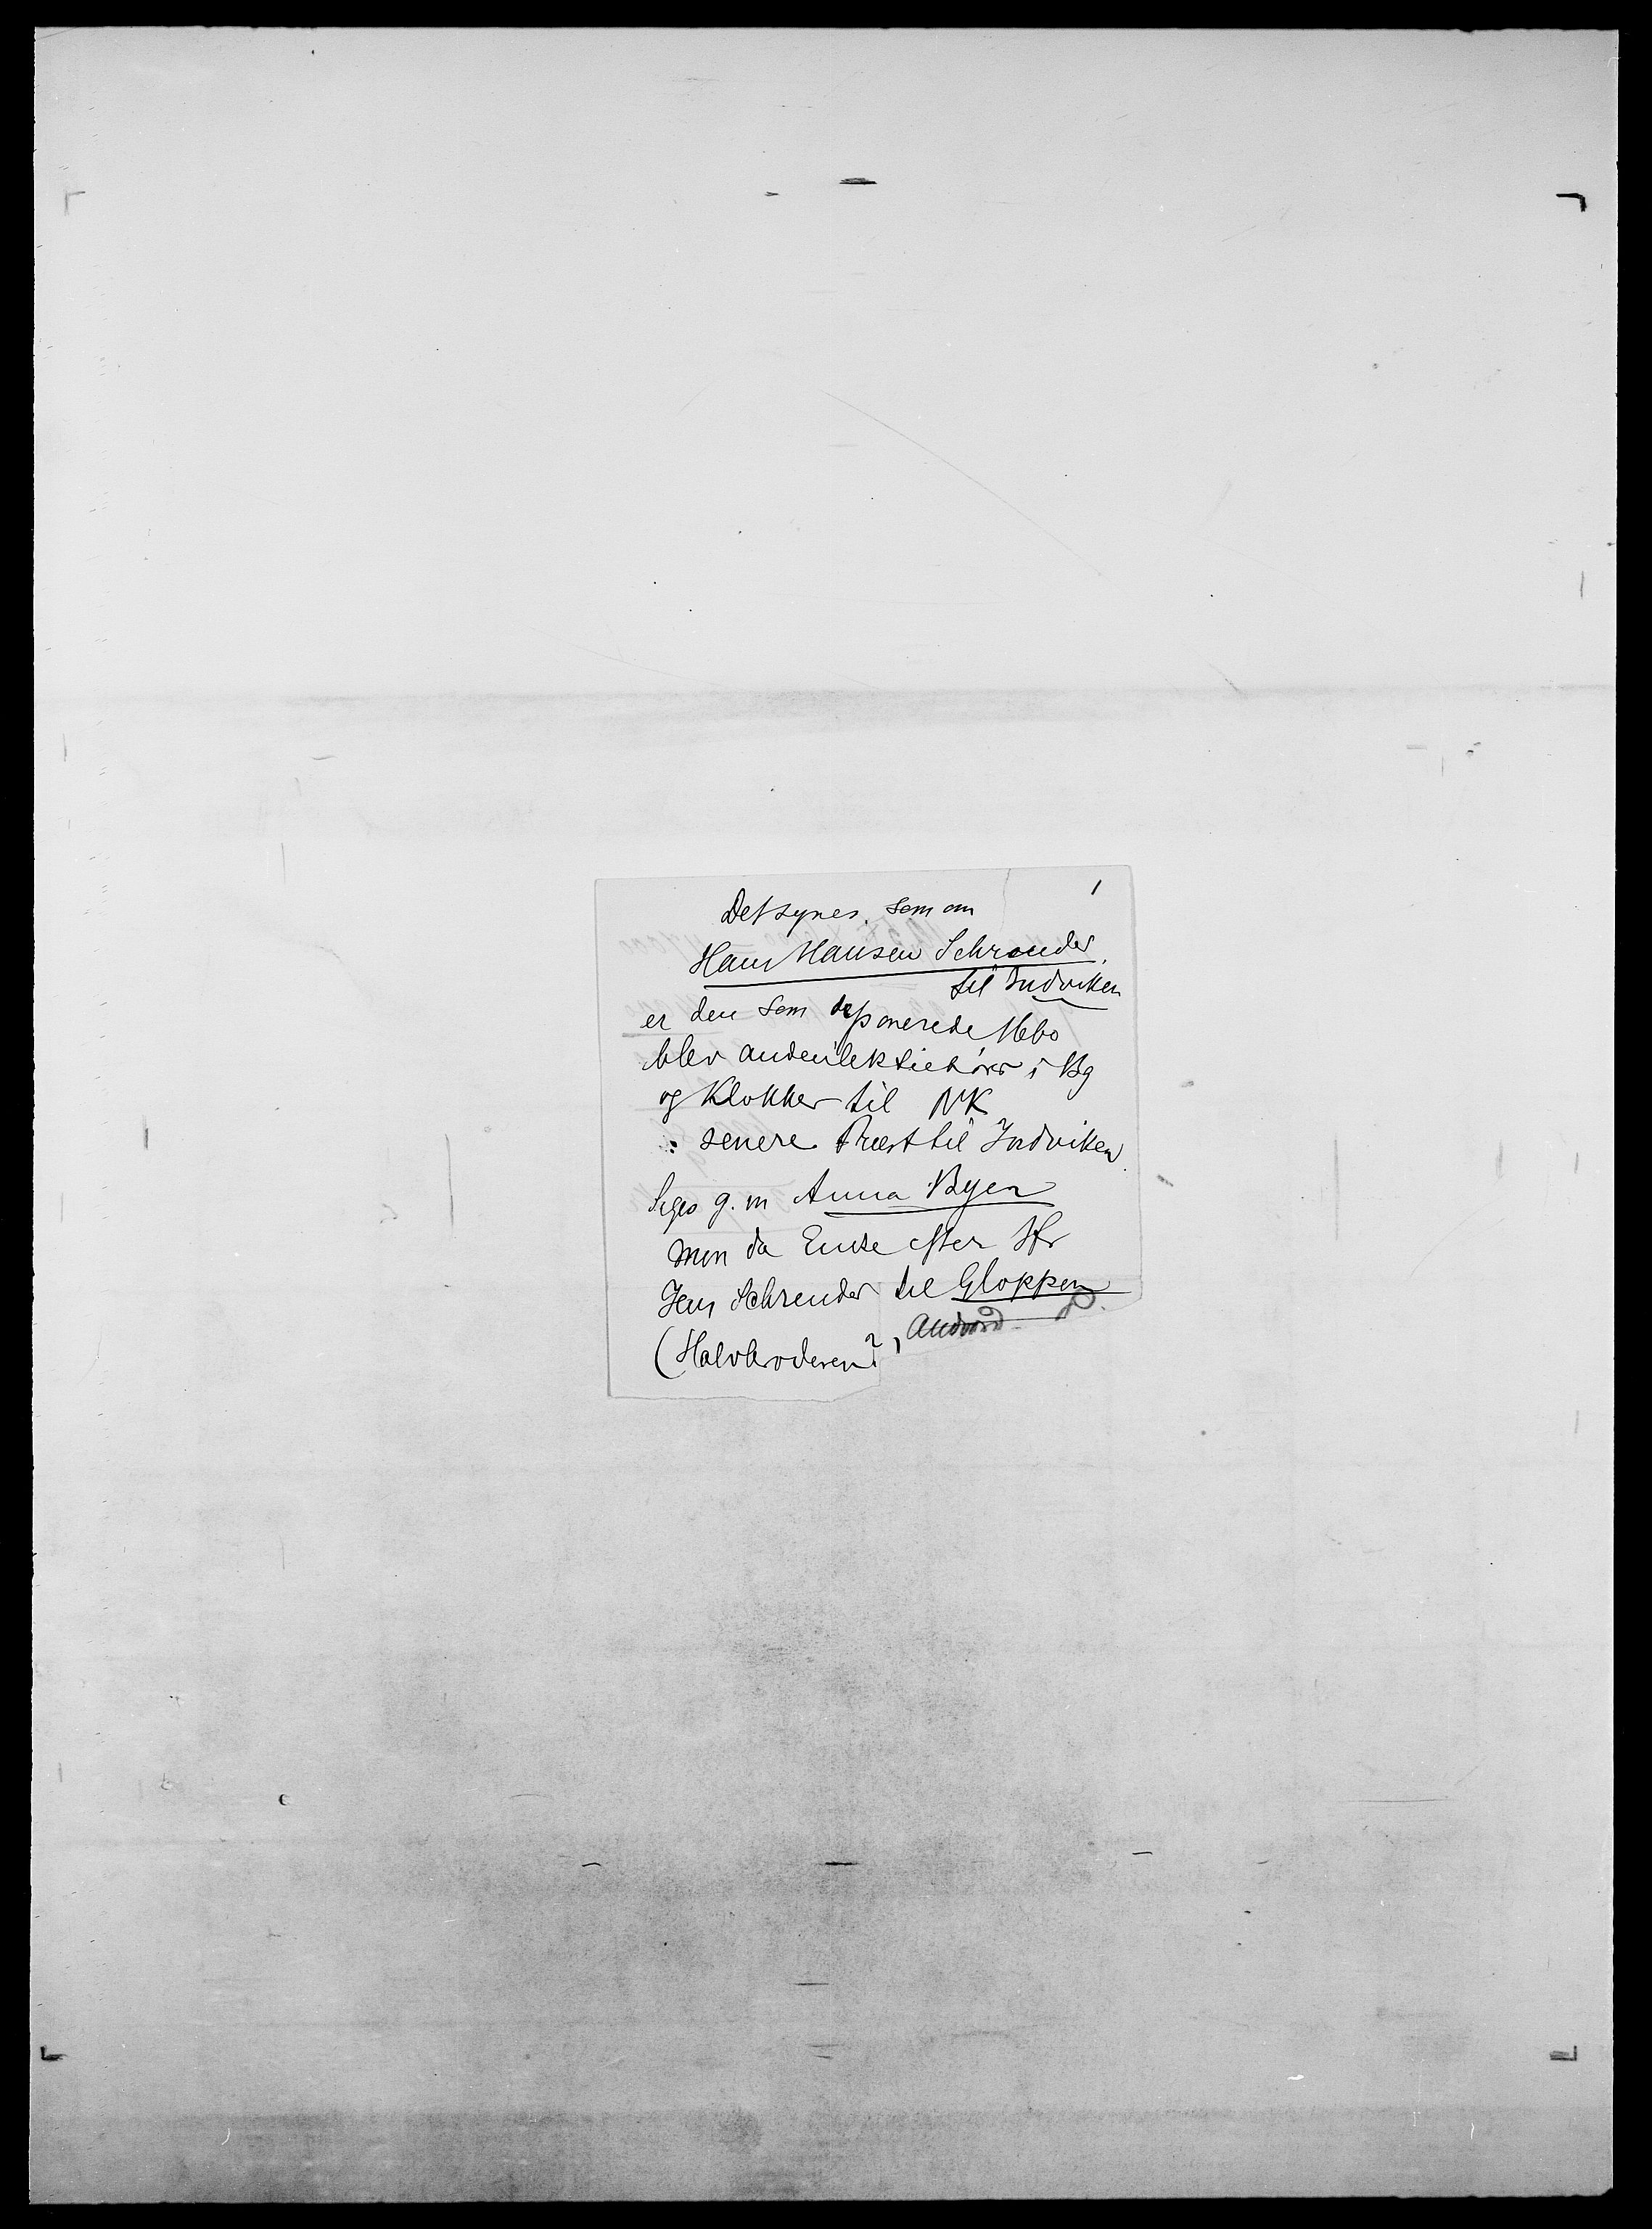 1
Det synes som om
Hans Hansen Schreuder
til Indviken
er den som deponerede
blev anden lektiehører i Bg
og Klokker til NK
: senere Præst til Indviken
Siges g. m Anna Byer
men da Enke efter Hr
Jens Schreuder til Gloppen
(Halvbroderen?)